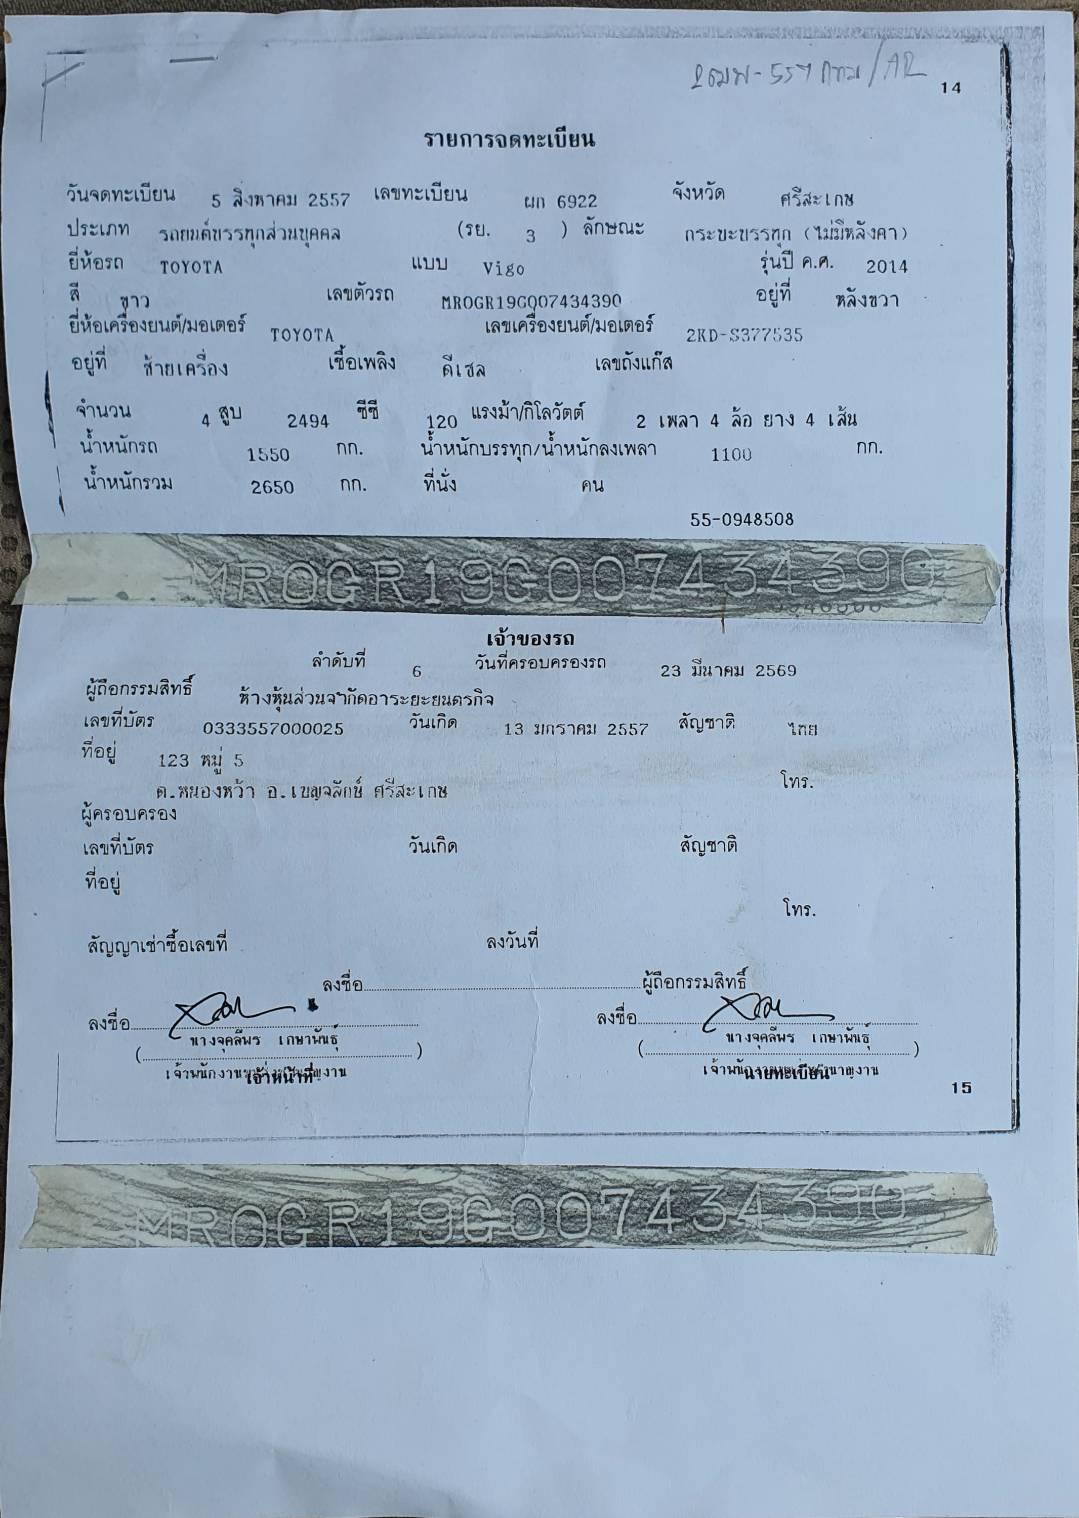 14
รายการจดทะเบียน
วันจดทะเบียน 5 สิงหาคม 2557 เลขทะเบียน ผก 6922 จังหวัด ศรีสะเกษ
ประเภท รถยนต์บรรทุกส่วนบุคคล (รย. 3 ) ลักษณะ กระบะบรรทุก (ไม่มีหลังคา)
ยี่ห้อรถ TOYOTA แบบ Vigo รุ่นปี ค.ศ. 2014
สี ขาว เลขตัวรถ MR0GR19G007434390 อยู่ที่ หลังขวา
ยี่ห้อเครื่องยนต์/มอเตอร์ TOYOTA เลขเครื่องยนต์/มอเตอร์ 2KD-S377535
อยู่ที่ ซ้ายเครื่อง เชื้อเพลิง ดีเซล เลขถังแก๊ส
จำนวน 4 สูบ 2494 ซีซี 120 แรงม้า/กิโลวัตต์ 2 เพลา 4 ล้อ ยาง 4 เส้น
น้ำหนักรถ 1550 กก. น้ำหนักบรรทุก/น้ำหนักลงเพลา 1100 กก.
น้ำหนักรวม 2650 กก. ที่นั่ง คน
55-0948508
MR0GR19G007434390
เจ้าของรถ
ลำดับที่ 6 วันที่ครอบครองรถ 23 มีนาคม 2569
ผู้ถือกรรมสิทธิ์ ห้างหุ้นส่วนจำกัดอาระยะยนตรกิจ
เลขที่บัตร 0333557000025 วันเกิด 13 มกราคม 2557 สัญชาติ ไทย
ที่อยู่ 123 หมู่ 5
ต.หนองหว้า อ.เบญจลักษ์ ศรีสะเกษ โทร.
ผู้ครอบครอง
เลขที่บัตร วันเกิด สัญชาติ
ที่อยู่
โทร.
สัญญาเช่าซื้อเลขที่ ลงวันที่
ลงชื่อ ผู้ถือกรรมสิทธิ์
ลงชื่อ ลงชื่อ
(นางจุคลีพร เกษาพันธุ์) (นางจุคลีพร เกษาพันธุ์)
เจ้าหน้าที่ นายทะเบียน
15
MR0GR19G007434390